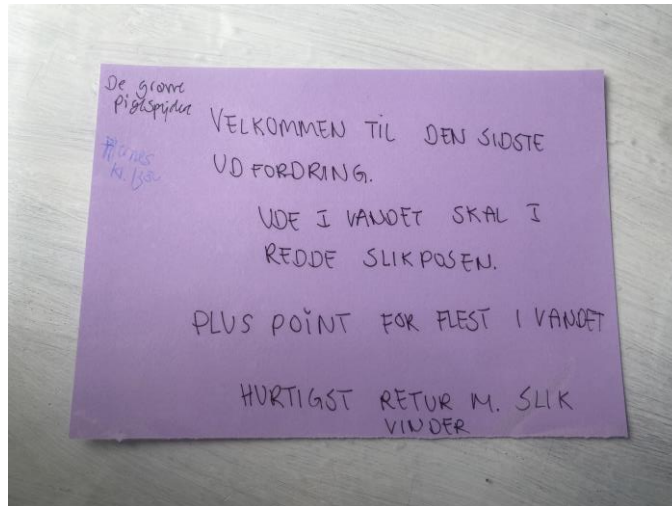 De grønne
pigespejder
kl. 1330
VELKOMMEN TIL DEN SIDSTE
UDFORDRING.
UDE I VANDET SKAL I
REDDE SLIKPOSEN.
PLUS POINT FOR FLEST I VANDET
HURTIGST RETUR M. SLIK
VINDER